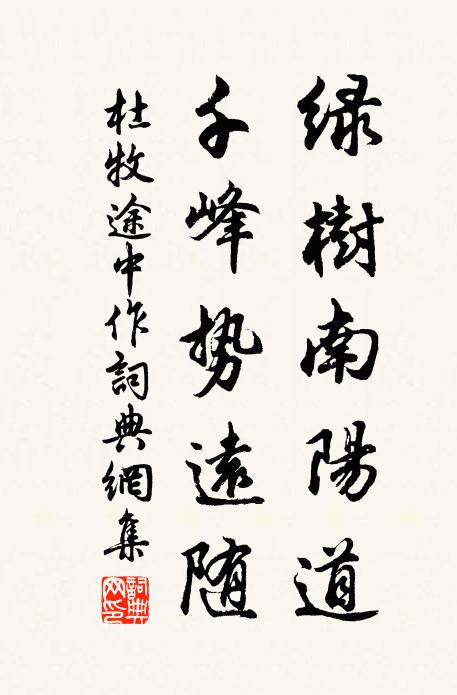 緑樹南陽道
千峰勢遠随
杜牧途中作詞典網集
詞典网印